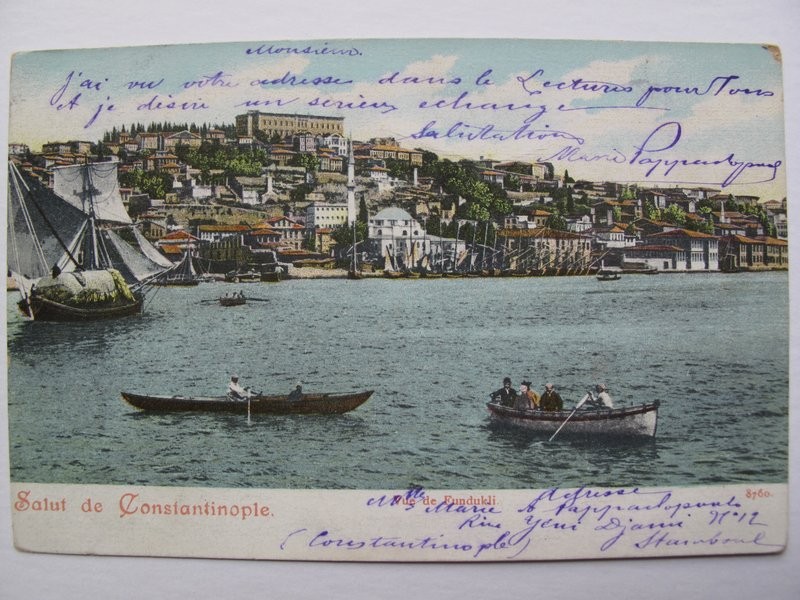 Monsieur.
j'ai vu votre adresse dans le Lectures pour Tous
et je désire un serieux echange
Salutations
Marie Pappadopoul
Salut de Constantinople.
Vue de Fundukli
8760.
Adresse
Mlle Marie Pappadopoul
Rue Yeni Djami Nº 12
(Constantinople) Stamboul